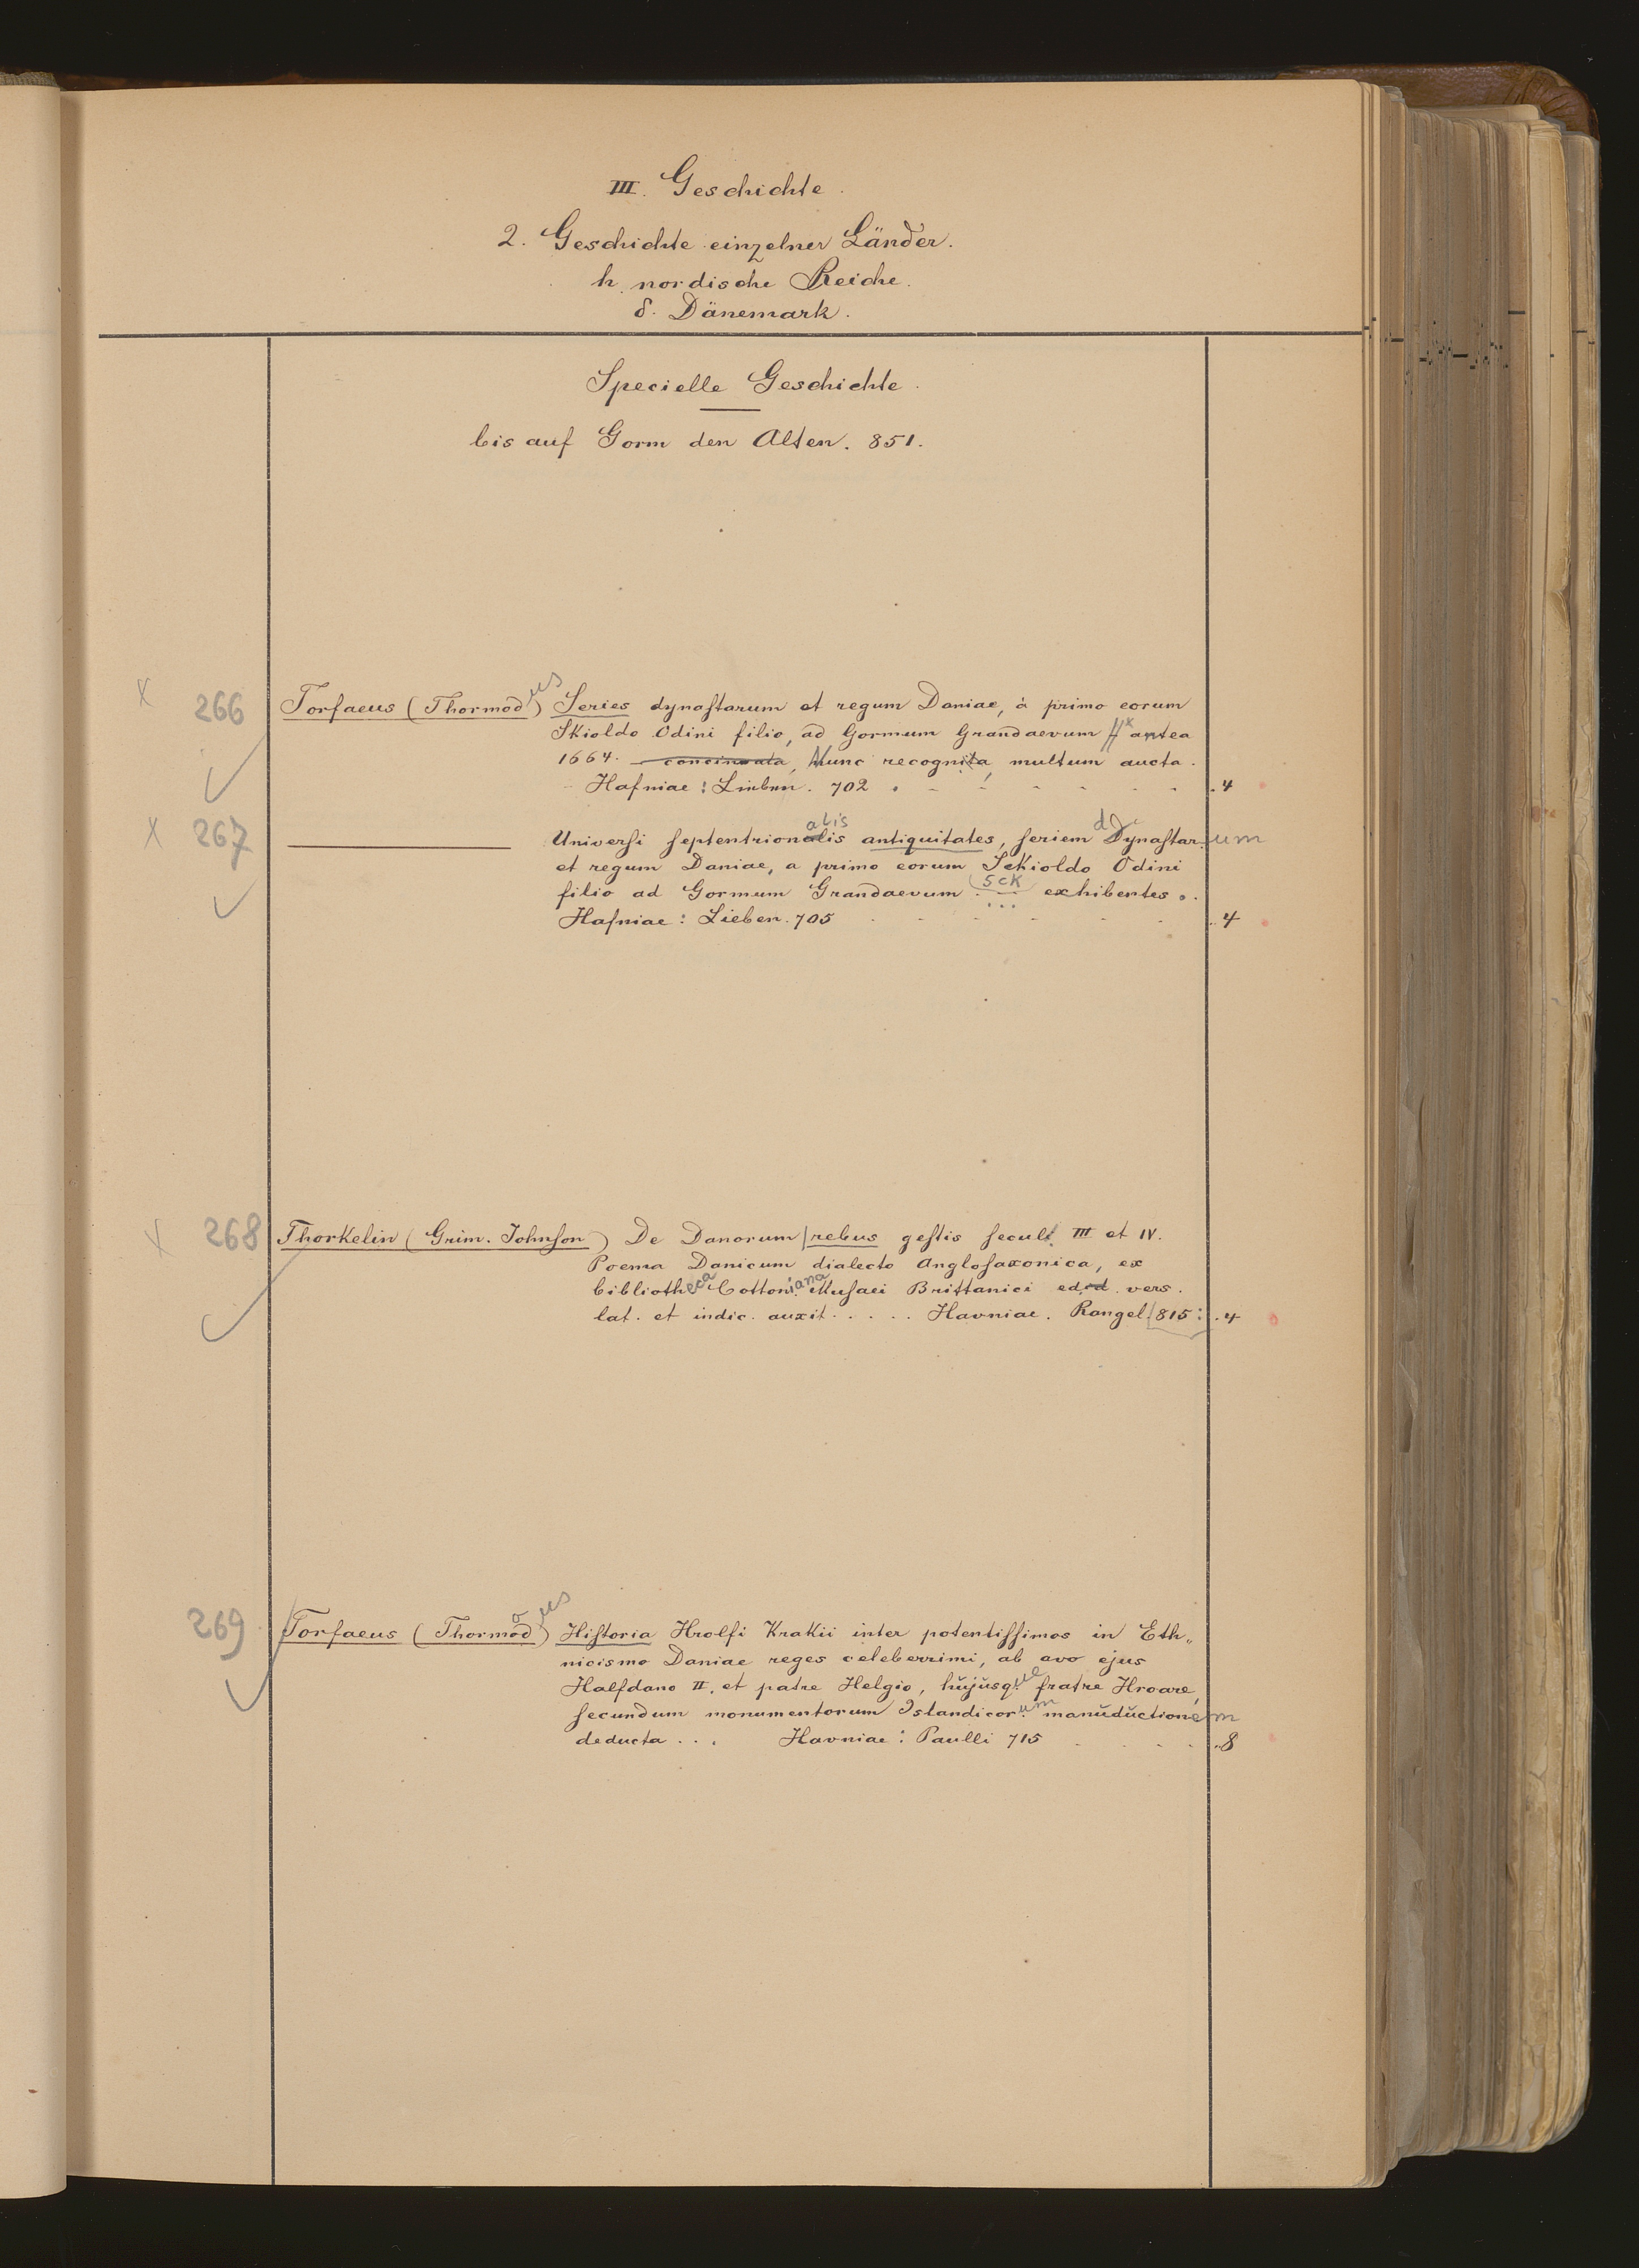 III. Geschichte.
2. Geschichte einzelner Länder.
h. nordische Reiche.
δ. Dänemark.
Specielle Geschichte.
bis auf Gorm den Alten. 851.
x 266 Torfaeus (Thormodus) Series dynastarum et regum Daniae, à primo eorum
Skioldo Odini filio, ad Gormum Grandaevum antea
1664. concinnata, Nunc recognita, multum aucta.
Hafniae: Lieben. 702 . 4
x 267 ——— Universi septentrionalis antiquitates, seriem dynastarum
et regum Daniae, a primo eorum Sckioldo Odini
filio ad Gormum Grandaevum . . . exhibentes.
Sck
Hafniae: Lieben. 705 . 4
x 268 Thorkelin (Grim. Johnson) De Danorum rebus gestis secul. III et IV.
Poema Danicum dialecto Anglosaxonica, ex
bibliotheca Cottoniana Musaei Brittanici ed. vers.
lat. et indic. auxit . . . . . Havniae. Rangel. 815: . 4
269 Torfaeus (Thormodus) Historia Hrolfi Krakii inter potentissimos in Eth„
nicismo Daniae reges celeberrimi, ab avo ejus
Halfdano II. et patre Helgio, hujusque fratre Hroare,
secundum monumentorum Islandicorum manuductionem
deducta . . . Havniae: Paulli 715 . 8